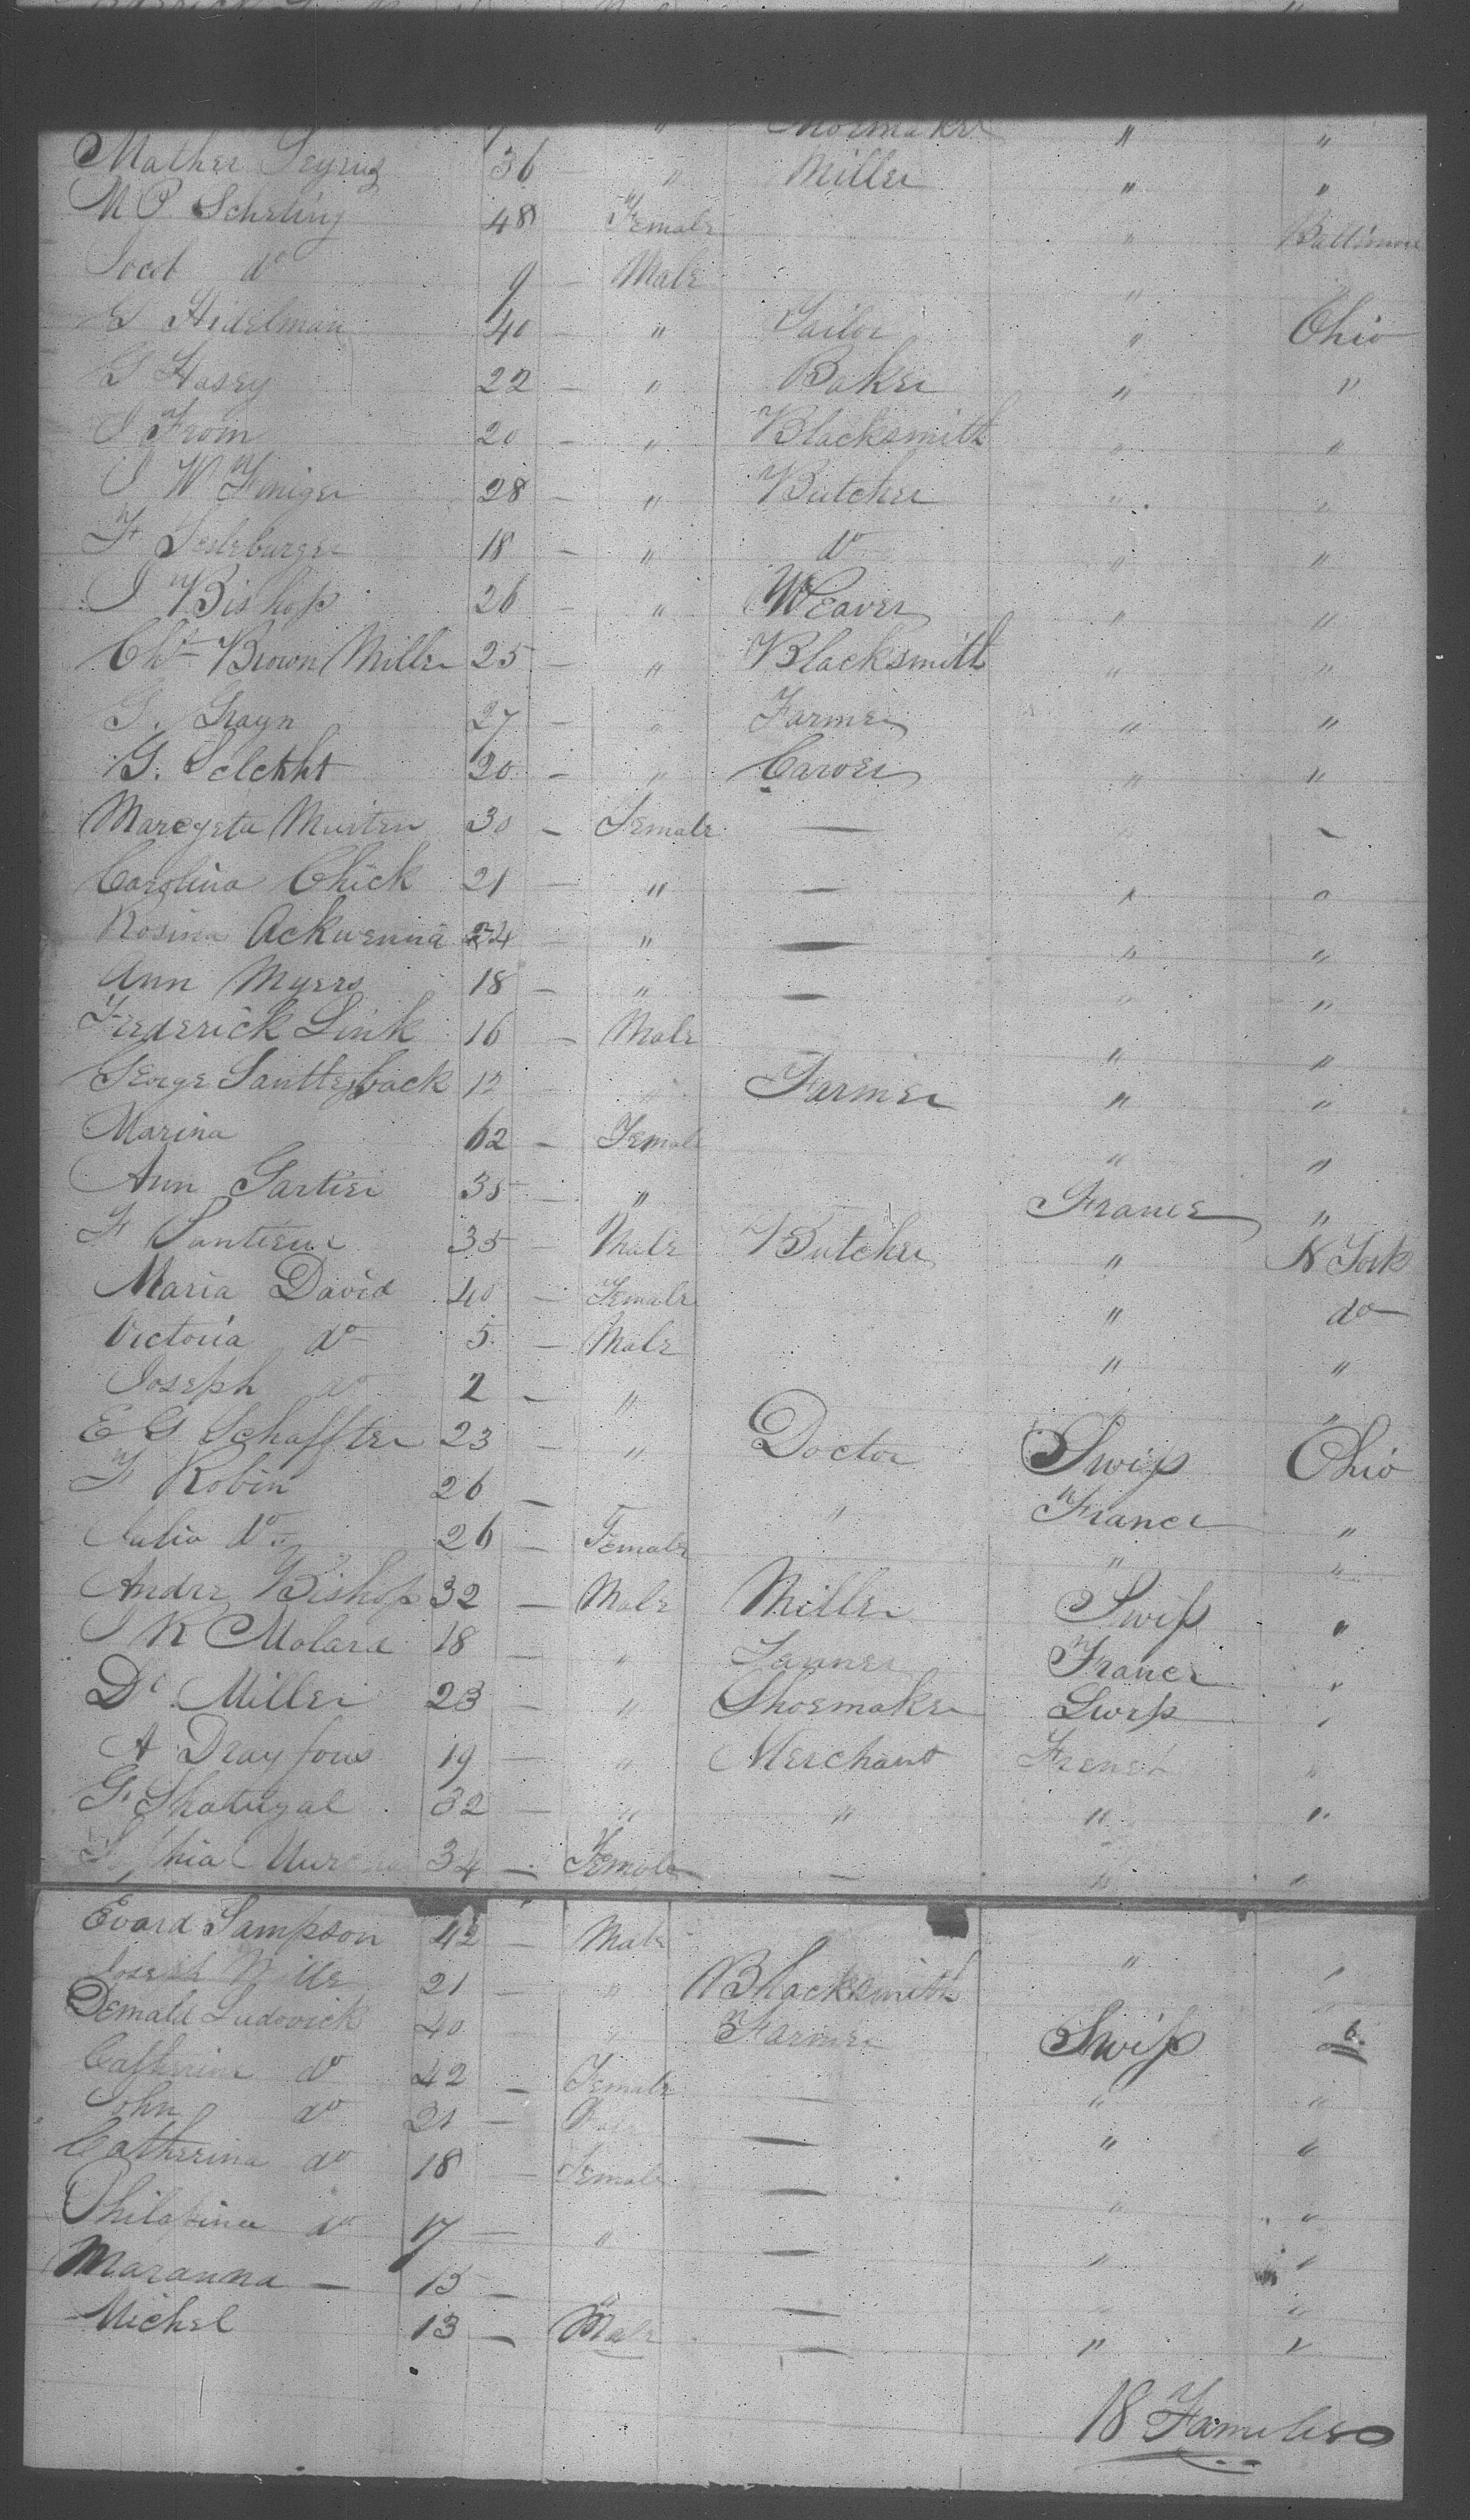 " Shoemaker " "
Mather Seyrug 36 " Miller " "
M P. Scheling 48 Female " Baltimore
Jacob do 9 - Male "
G Hidelman 40 - " Tailor " Ohio
G Hasey 22 - " Baker " "
J From 20 - " Blacksmith " "
J W Finiger 28 - " Butcher " "
F Sesleburger 18 - " do " "
J Bishop 26 - " Weaver " "
Chs Brown Miller 25 - " Blacksmith " "
G. Grayn 27 - " Farmer " "
G. Selckht 20 - " Carver " "
Margeta Muiten 30 - Female — " -
Carolina Chick 21 - " — " "
Rosina Ackuenna 24 - " — " "
Ann Myers 18 - " — " "
Frederick Link 16 - Male " "
George Santtesback 12 " Farmer " "
Marina 62 - Female " "
Ann Gartier 35 - " France "
F Santieux 35 - Male Butcher " N York
Maria David 40 - Female " do
Victoria do 5 - Male " "
Joseph do 2 - " "
E G Schaffter 23 - " Doctor Swiss Ohio
F Robin 26 - " France "
Julia do 26 - Female " "
Andre Bishop 32 - Male Miller Swiss "
J K Molard 18 - " Tanner France "
D. Miller 23 - " Shoemaker Swiss "
A Drayfous 19 - " Merchant French "
G. Shatugal 32 - " " " "
34 - Female - " "
Evard Sampson 42 - Male " "
Joseph Mille 21 - " Blacksmith "
Demald Ludovick 40 " Farmer Swiss 6
Catherine do 42 - Female — " "
John do 21 - Male — " "
Catherina do 18 - Female — " "
Philapina do 17 - " — " "
Maranna - 15 - " — " "
Michel 13 - Male — " "
18 Families